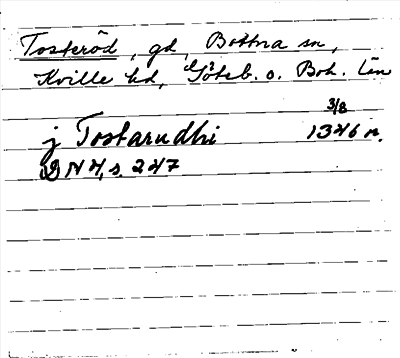 Tosteröd, gd, Bottna sn,
Kville hd, Göteb. o. Boh. län
3/8
j Tostarudhi 1346 n.
DN 4, s. 247